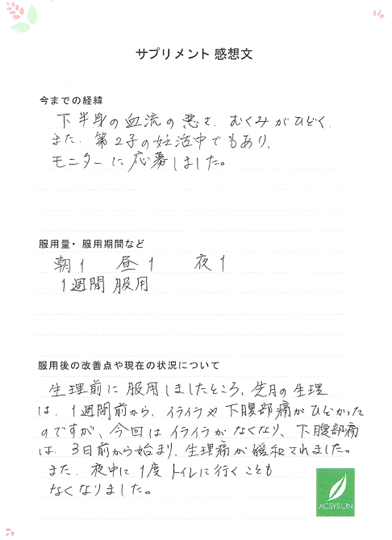 サプリメント 感想文
今までの経緯
下半身の血流の悪さ、むくみがひどく、
また、第2子の妊活中でもあり、
モニターに応募しました。
服用量・服用期間など
朝1 昼1 夜1
1週間 服用
服用後の改善点や現在の状況について
生理前に服用しましたところ、先月の生理
は、1週間前から、イライラや下腹部痛がひどかった
のですが、今回はイライラがなくなり、下腹部痛
は、3日前から始まり、生理痛が緩和されました。
また、夜中に1度トイレに行くことも
なくなりました。
ACSYSUN